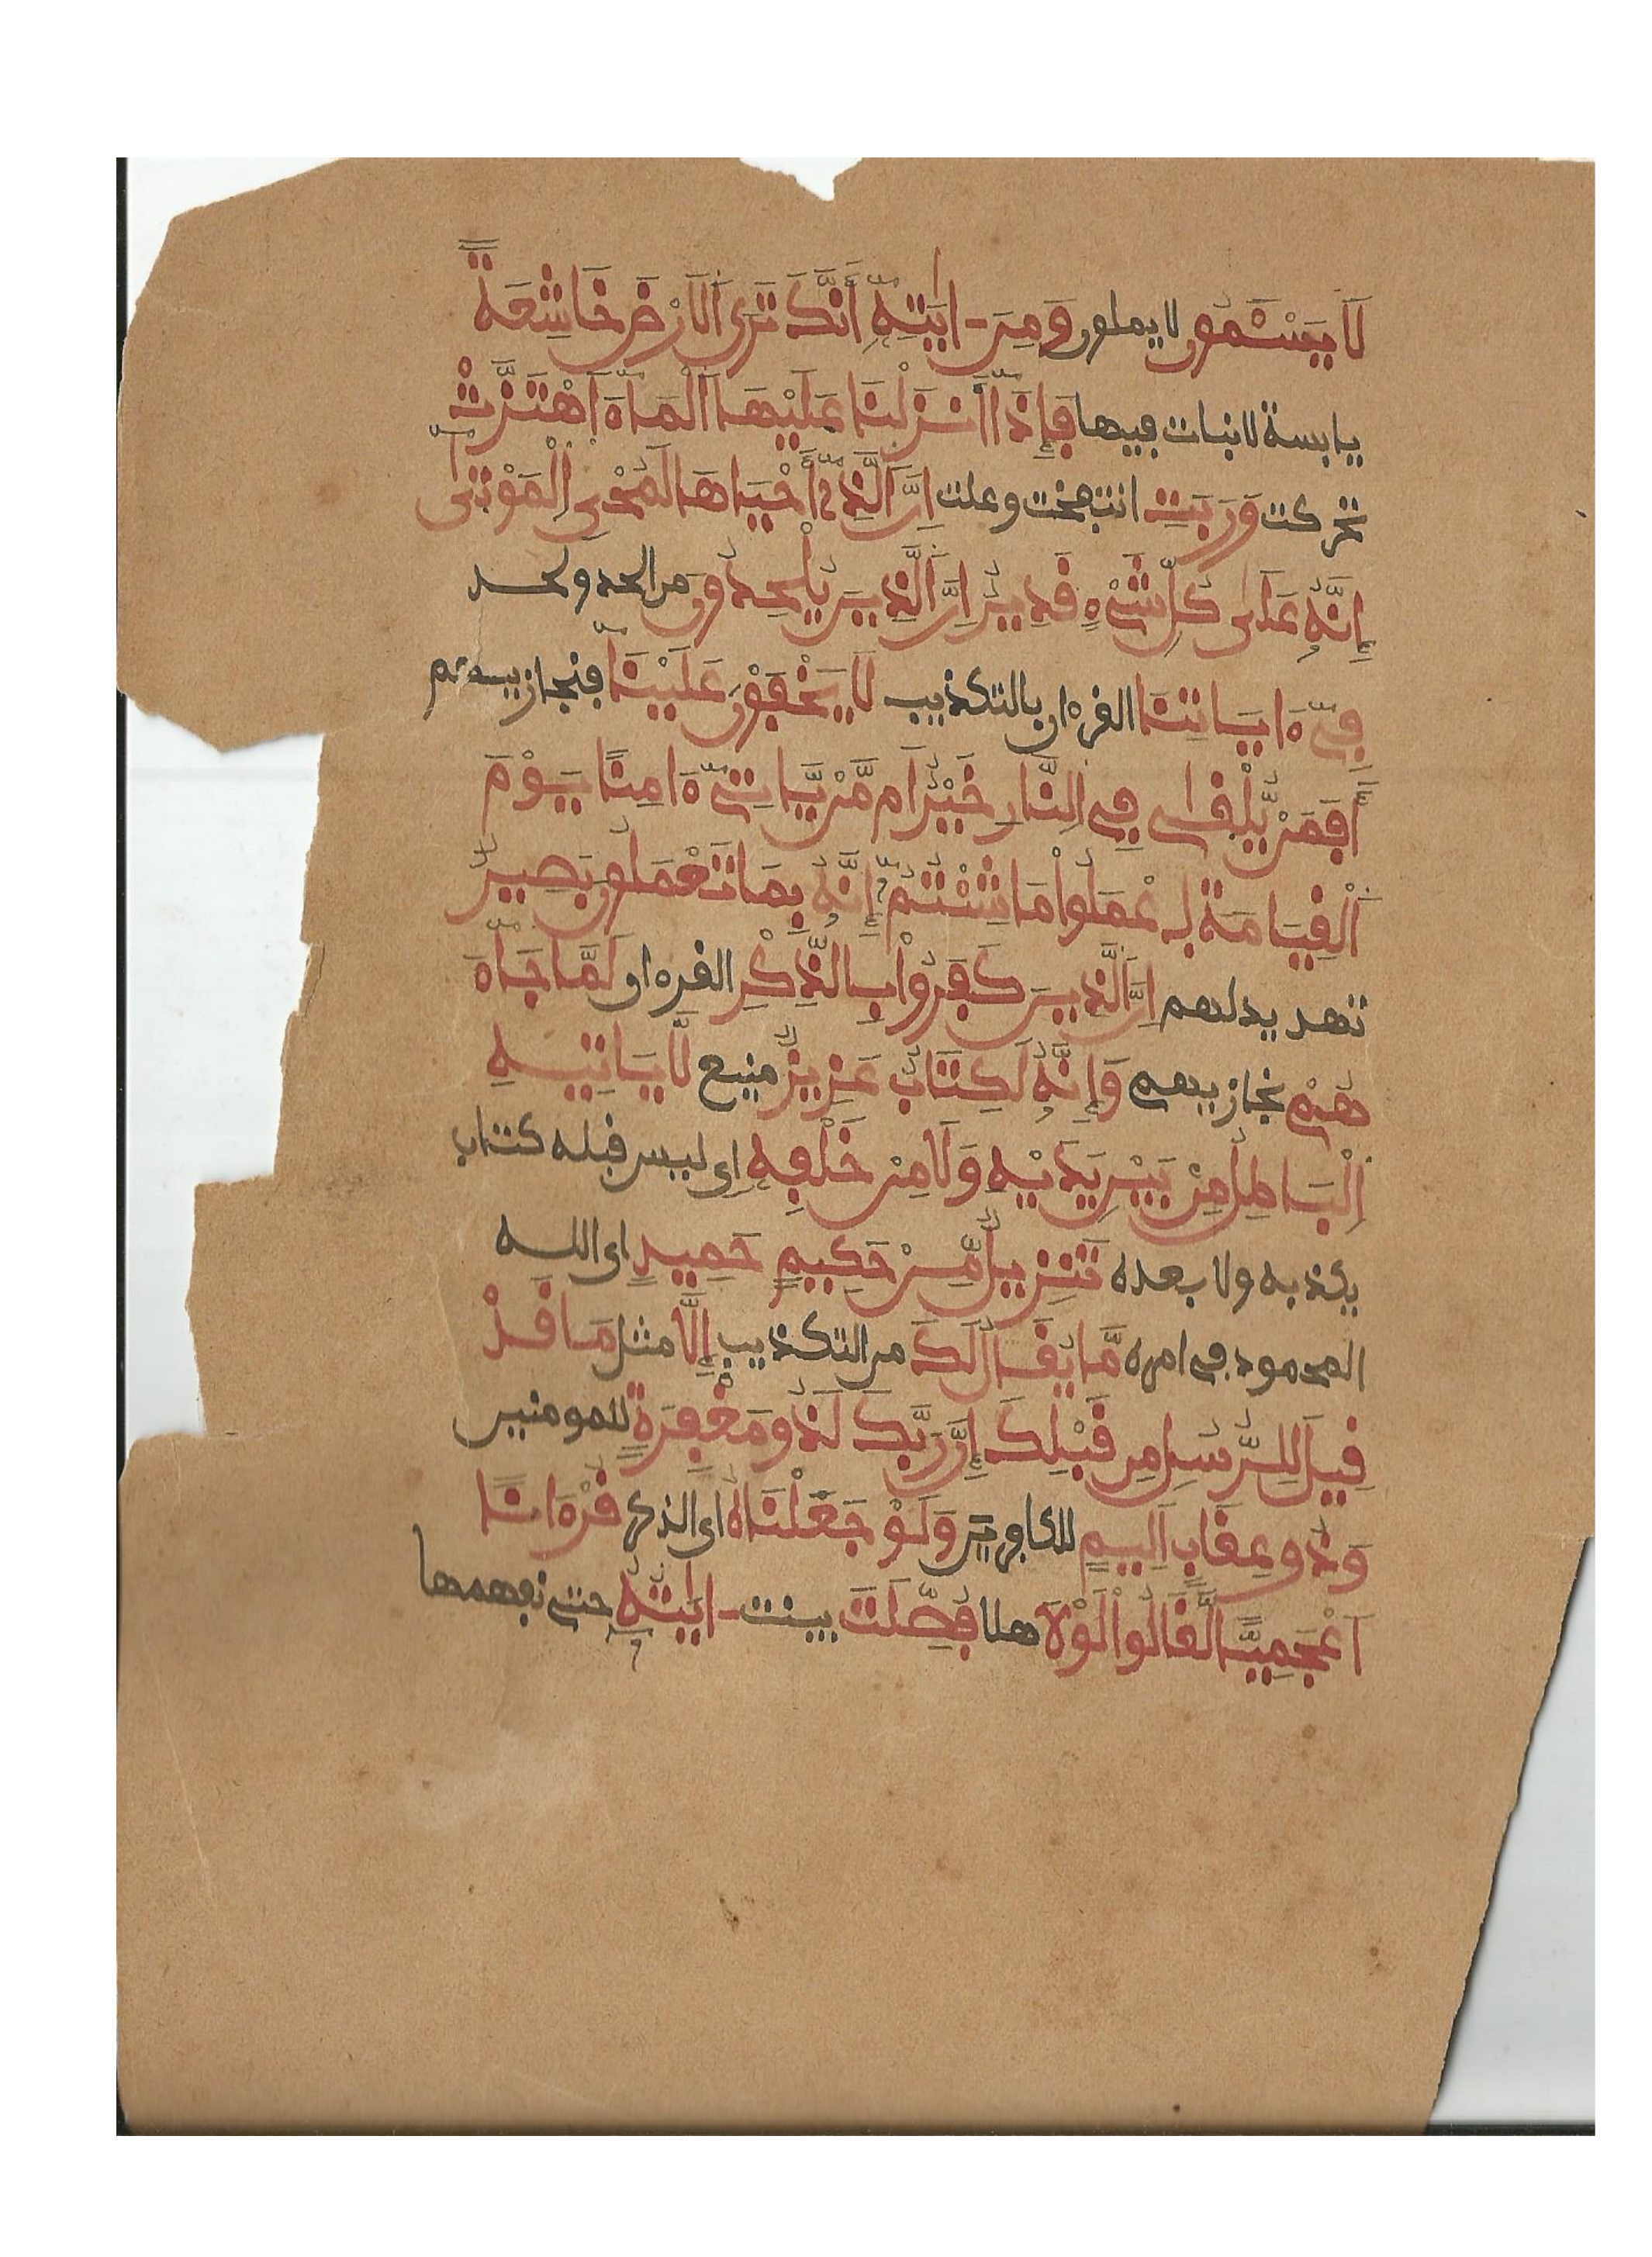 لَا يَسْـَٔمُونَ لا يملون وَمِنَ ـ اٰيَٰتِهِۦٓ أَنَّكَ تَرَى اَلَارْضَ خَاشِعَةً
يابسة لا نبات فيها فَإِذَآ أَنزَلْنَا عَلَيْهَا اَلْمَآءَ اَهْتَزَّتْ
تحركت وَرَبَتِ انتفخت وعلت اِنَّ اَلَّذِےٓ أَحْيَاهَا لَمُحْىِ اِلْمَوْتٰىٓ
إِنَّهُۥ عَلَىٰ كُلِّ شَےْءٍ قَدِيرٌ اِنَّ اَلَّذِينَ يُلْحِدُونَ من الحد ولحد
فِےٓ ءَايَاتِنَا القرءان بالتكذيب لَا يَخْفَوْنَ عَلَيْنَآ فنجازيهم
أَفَمَنْ يُّلْقٰى فِے اِلنّارِ خَيْرٌ اَم مَّنْ يَّاتِےٓ ءَامِنًا يَوْمَ
اَلْقِيَامَةِ اِعْمَلُواْ مَا شِئْتُمُۥٓ إِنَّهُۥ بِمَا تَعْمَلُونَ بَصِيرٌ
تهديد لهم اِنَّ اَلَّذِينَ كَفَرُواْ بِالذِّكْرِ القرءان لَمَّا جَآءَ
هُمْ نجازيهم وَإِنَّهُۥ لَكِتَابٌ عَزِيزٌ منيع لَّا يَاتِيهِ
اِلْبَاطِلُ مِنۢ بَيْنِ يَدَيْهِ وَلَا مِنْ خَلْفِهِۦ اى ليس قبله كتاب
يكذبه ولا بعده تَنزِيلٌ مِّنْ حَكِيمٍ حَمِيدٍ اى الله
المحمود فى امره مَّا يُقَالُ لَكَ من التكذيب إِلَّا مثل مَا قَدْ
قِيلَ لِلرُّسُلِ مِن قَبْلِكَ إِنَّ رَبَّكَ لَذُو مَغْفِرَةٍ للمومنين
وَذُو عِقَابٍ اَلِيمٍ للكافرين وَلَوْ جَعَلْنَاهُ اى الذكر قُرْءَانًا
اَعْجَمِيًّا لَّقَالُواْ لَوْلَا هلا فُصِّلَتَ بينت ـ اٰيَٰتُهُۥٓ حتى نفهمها